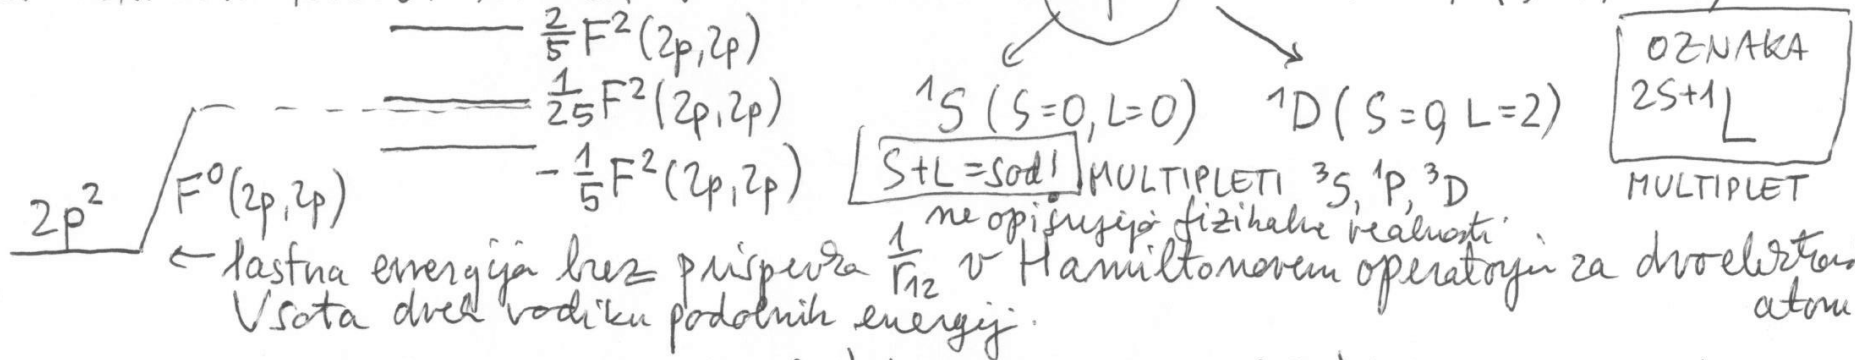 2/5 F²(2p,2p)
1/25 F²(2p,2p)
-1/5 F²(2p,2p)
2p²
F⁰(2p,2p)
¹S (S=0, L=0)
¹D (S=0, L=2)
S+L=sod!
MULTIPLETI ³S, ¹P, ³D
ne opisujejo fizikalne realnosti
OZNAKA
2S+1 L
MULTIPLET
← lastna energija brez prispevka 1/r₁₂ v Hamiltonovem operatorju za dvoelektron
atom
Vsota dveh vodiku podobnih energij.